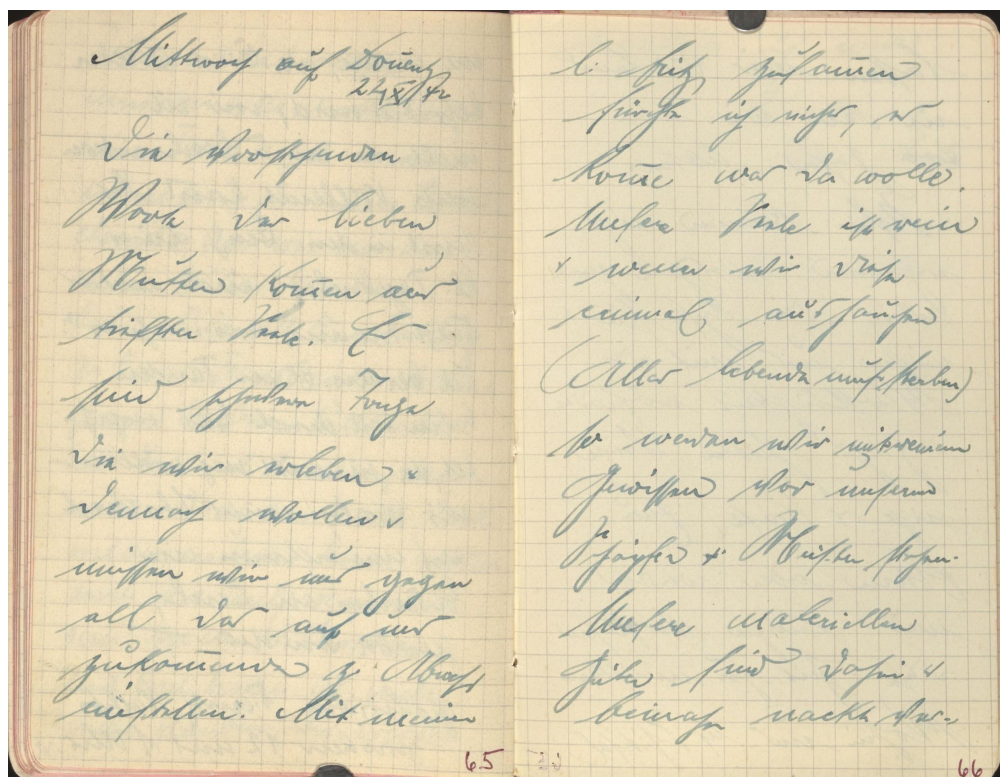 Mittwoch auf Donnerstg
22/X/42
Die Vorstehenden
Worte der lieben
Mutter kom̅en aus
tiefster Seele. Es
sind schwere Tage
die wir erleben &
dennoch wollen &
müssen wir uns gegen
all das auf uns
zukom̅ende z.
einstellen. Mit meiner
l: Fritz, zusam̅en
fürchte ich nichts, es
kom̅e was da wolle.
Unsere Seele ist rein
& wenn wir diese
einmal aushauchen
(Alles lebende muss sterben)
so werden wir mit reinem
Gewissen vor unserm
Schöpfer & Meister stehen.
Unsere materiellen
Güter sind dahin &
beinahe nackt ver-
65
66